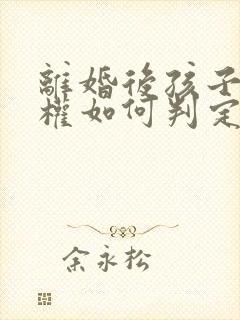 離婚後孩子
權如何判定
余永松